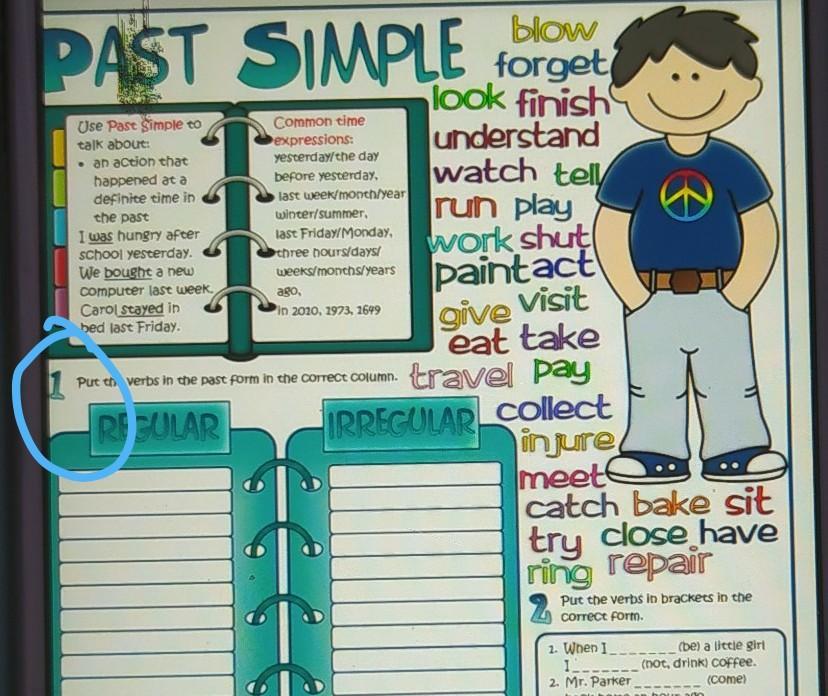 PAST SIMPLE
Use Past Simple to
talk about:
• an action that
happened at a
definite time in
the past
I was hungry after
school yesterday.
We bought a new
computer last week.
Carol stayed in
bed last Friday.
Common time
expressions:
yesterday/the day
before yesterday,
last week/month/year
winter/summer,
last Friday/Monday,
three hours/days/
weeks/months/years
ago,
in 2010, 1973, 1699
blow
forget
look finish
understand
watch tell
run play
work shut
paint act
give visit
eat take
travel pay
collect
injure
meet
catch bake sit
try close have
ring repair
1 Put the verbs in the past form in the correct column.
REGULAR
IRREGULAR
2 Put the verbs in brackets in the
correct form.
1. When I_______ (be) a little girl
I_______ (not, drink) coffee.
2. Mr. Parker _______ (come)